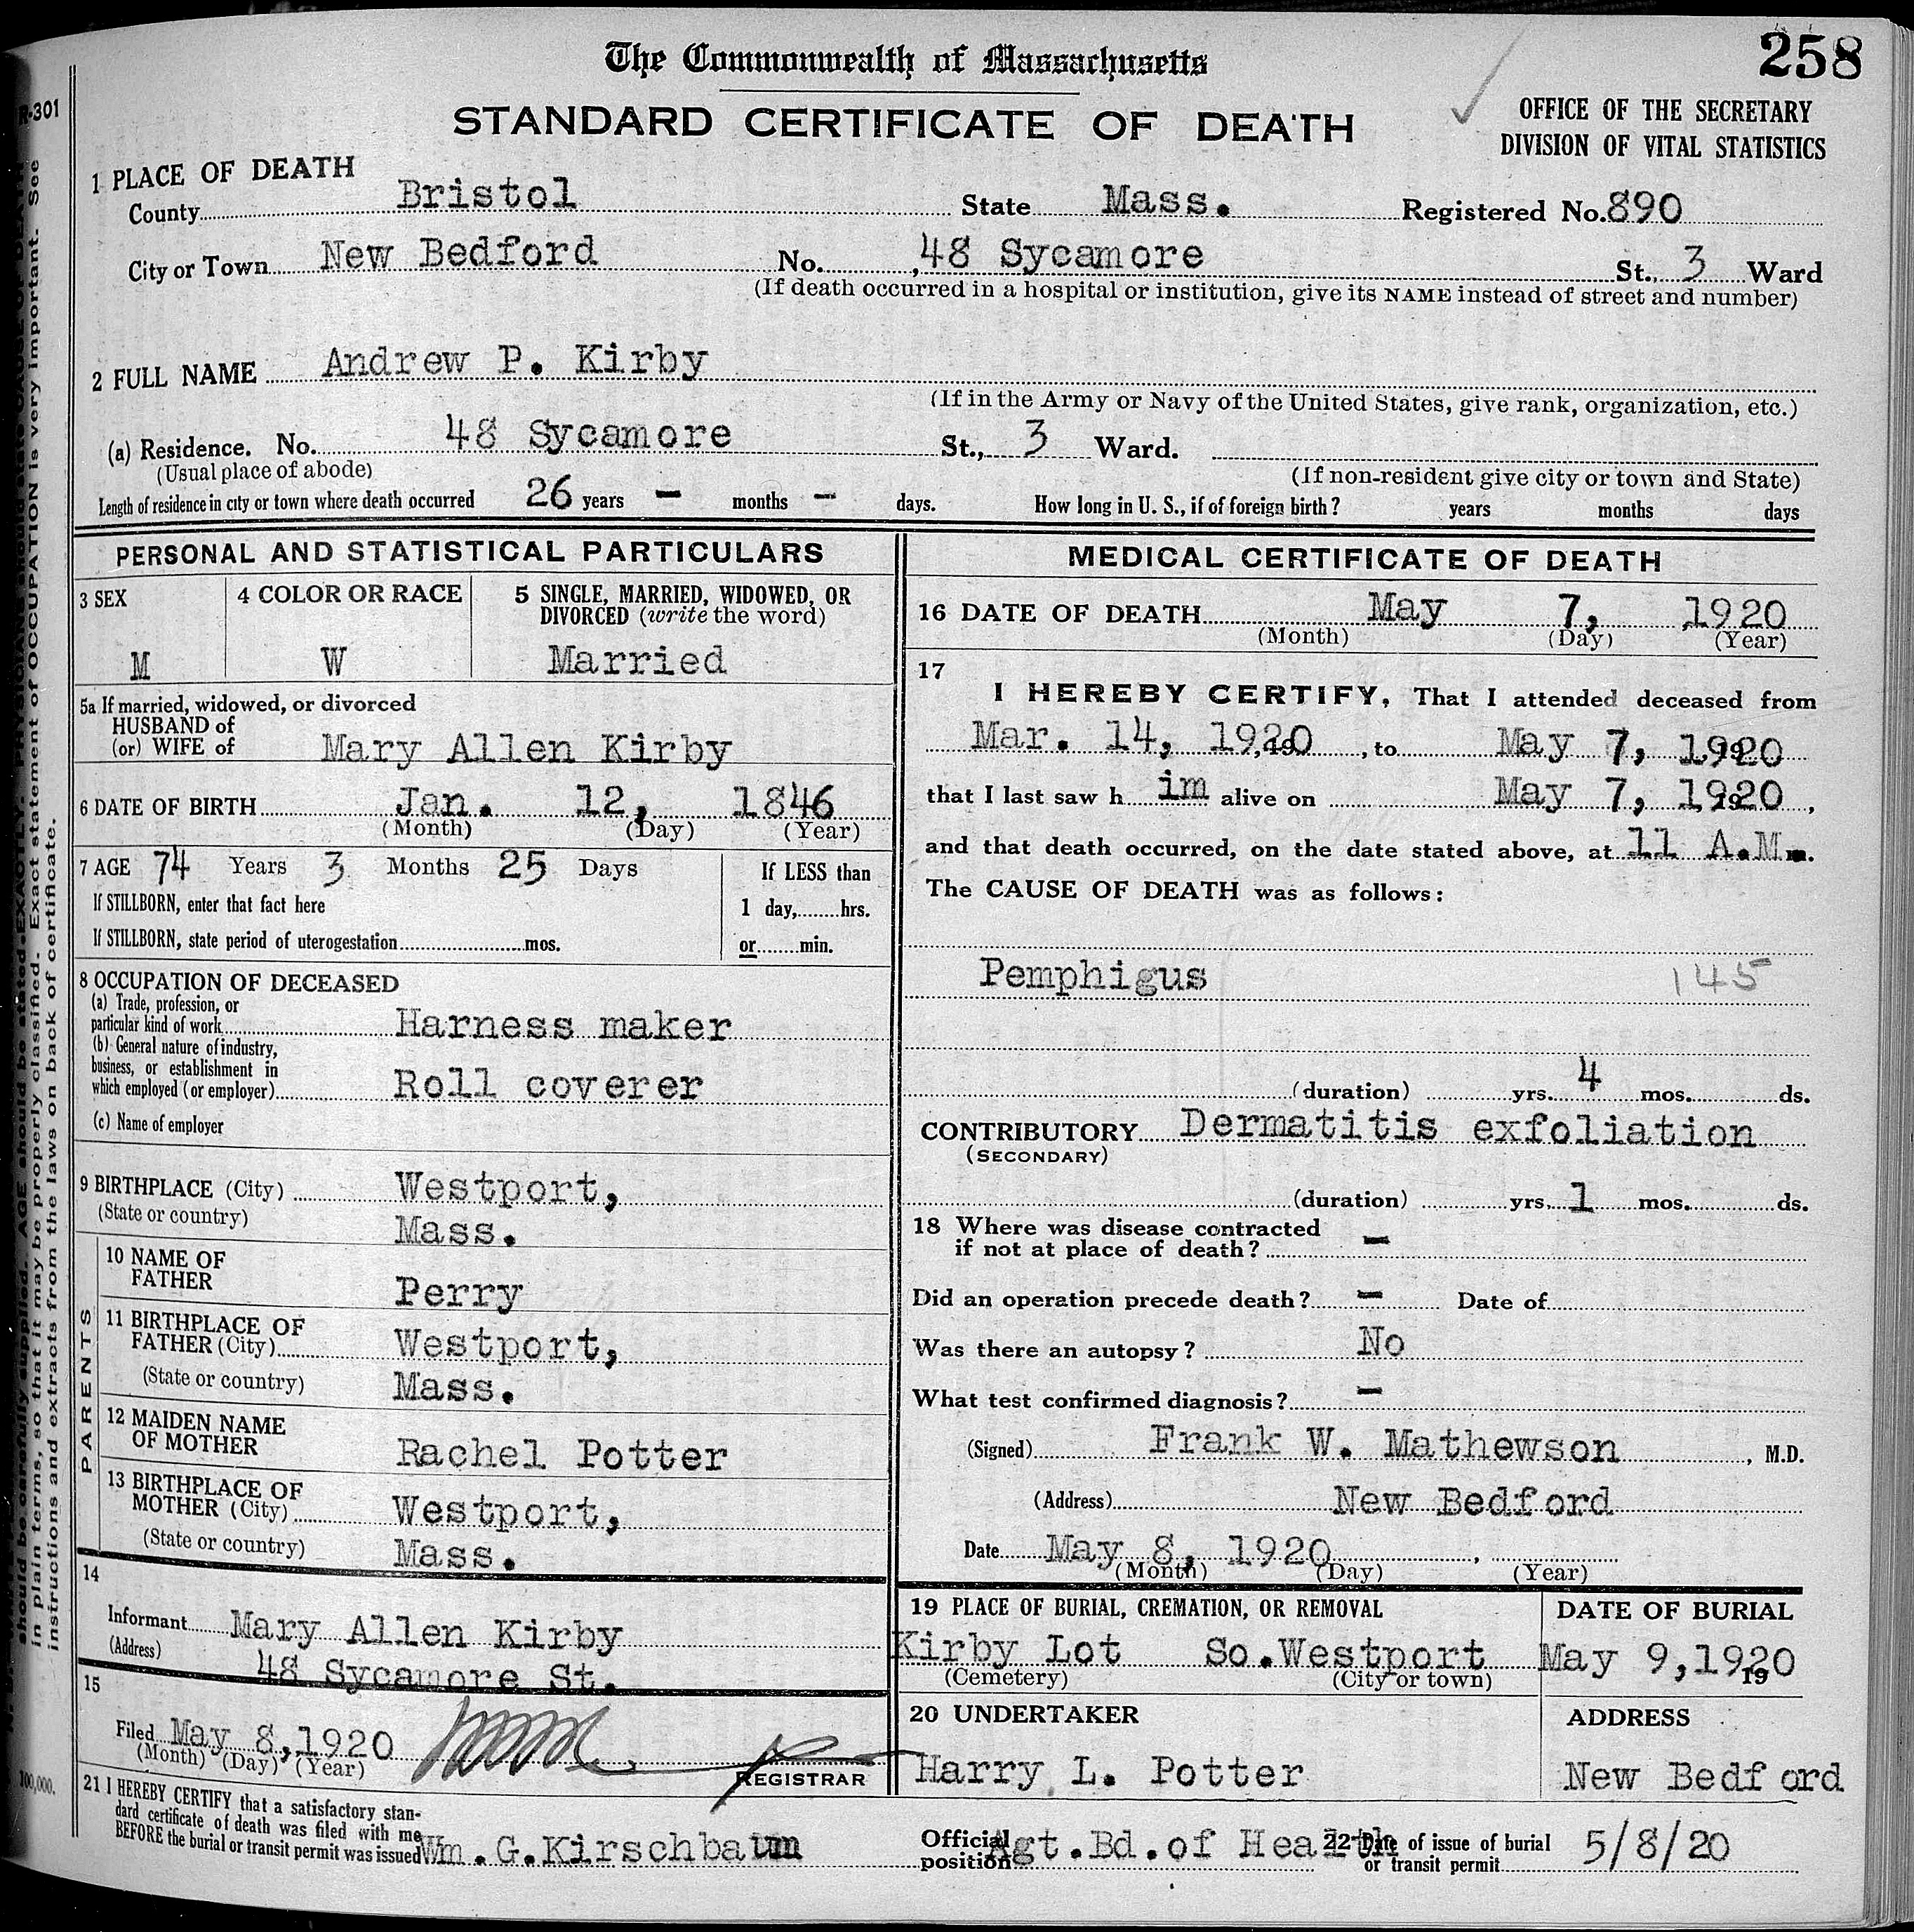 258
The Commonwealth of Massachusetts
STANDARD CERTIFICATE OF DEATH
OFFICE OF THE SECRETARY
DIVISION OF VITAL STATISTICS
R-301
1 PLACE OF DEATH
County Bristol State Mass. Registered No. 890
City or Town New Bedford No. 48 Sycamore St., 3 Ward
(If death occurred in a hospital or institution, give its NAME instead of street and number)
2 FULL NAME Andrew P. Kirby
(If in the Army or Navy of the United States, give rank, organization, etc.)
(a) Residence. No. 48 Sycamore St., 3 Ward.
(Usual place of abode) (If non-resident give city or town and State)
Length of residence in city or town where death occurred 26 years - months - days. How long in U. S., if of foreign birth? years months days
PERSONAL AND STATISTICAL PARTICULARS
3 SEX
M
4 COLOR OR RACE
W
5 SINGLE, MARRIED, WIDOWED, OR
DIVORCED (write the word)
Married
5a If married, widowed, or divorced
HUSBAND of
(or) WIFE of Mary Allen Kirby
6 DATE OF BIRTH Jan. 12, 1846
(Month) (Day) (Year)
7 AGE 74 Years 3 Months 25 Days
If STILLBORN, enter that fact here
If STILLBORN, state period of uterogestation mos.
If LESS than
1 day, hrs.
or min.
8 OCCUPATION OF DECEASED
(a) Trade, profession, or
particular kind of work Harness maker
(b) General nature of industry,
business, or establishment in
which employed (or employer) Roll coverer
(c) Name of employer
9 BIRTHPLACE (City) Westport,
(State or country) Mass.
PARENTS
10 NAME OF
FATHER Perry
11 BIRTHPLACE OF
FATHER (City) Westport,
(State or country) Mass.
12 MAIDEN NAME
OF MOTHER Rachel Potter
13 BIRTHPLACE OF
MOTHER (City) Westport,
(State or country) Mass.
14
Informant Mary Allen Kirby
(Address) 48 Sycamore St.
15
Filed May 8, 1920
(Month) (Day) (Year)
REGISTRAR
MEDICAL CERTIFICATE OF DEATH
16 DATE OF DEATH May 7, 1920
(Month) (Day) (Year)
17
I HEREBY CERTIFY, That I attended deceased from
Mar. 14, 1920, to May 7, 1920
that I last saw h im alive on May 7, 1920,
and that death occurred, on the date stated above, at 11 A.M.
The CAUSE OF DEATH was as follows:
Pemphigus 145
(duration) yrs. 4 mos. ds.
CONTRIBUTORY Dermatitis exfoliation
(SECONDARY)
(duration) yrs. 1 mos. ds.
18 Where was disease contracted
if not at place of death? -
Did an operation precede death? - Date of
Was there an autopsy? No
What test confirmed diagnosis? -
(Signed) Frank W. Mathewson, M.D.
(Address) New Bedford
Date May 8, 1920,
(Month) (Day) (Year)
19 PLACE OF BURIAL, CREMATION, OR REMOVAL
Kirby Lot So. Westport
(Cemetery) (City or town)
DATE OF BURIAL
May 9, 1920
19
20 UNDERTAKER
Harry L. Potter
ADDRESS
New Bedford
21 I HEREBY CERTIFY that a satisfactory stan-
dard certificate of death was filed with me
BEFORE the burial or transit permit was issued Wm. G. Kirschbaum
Official
position Agt. Bd. of Health
22 Date of issue of burial
or transit permit 5/8/20
should be carefully supplied. AGE should be stated EXACTLY. PHYSICIANS should state CAUSE OF DEATH
in plain terms, so that it may be properly classified. Exact statement of OCCUPATION is very important. See
instructions and extracts from the laws on back of certificate.
100,000.